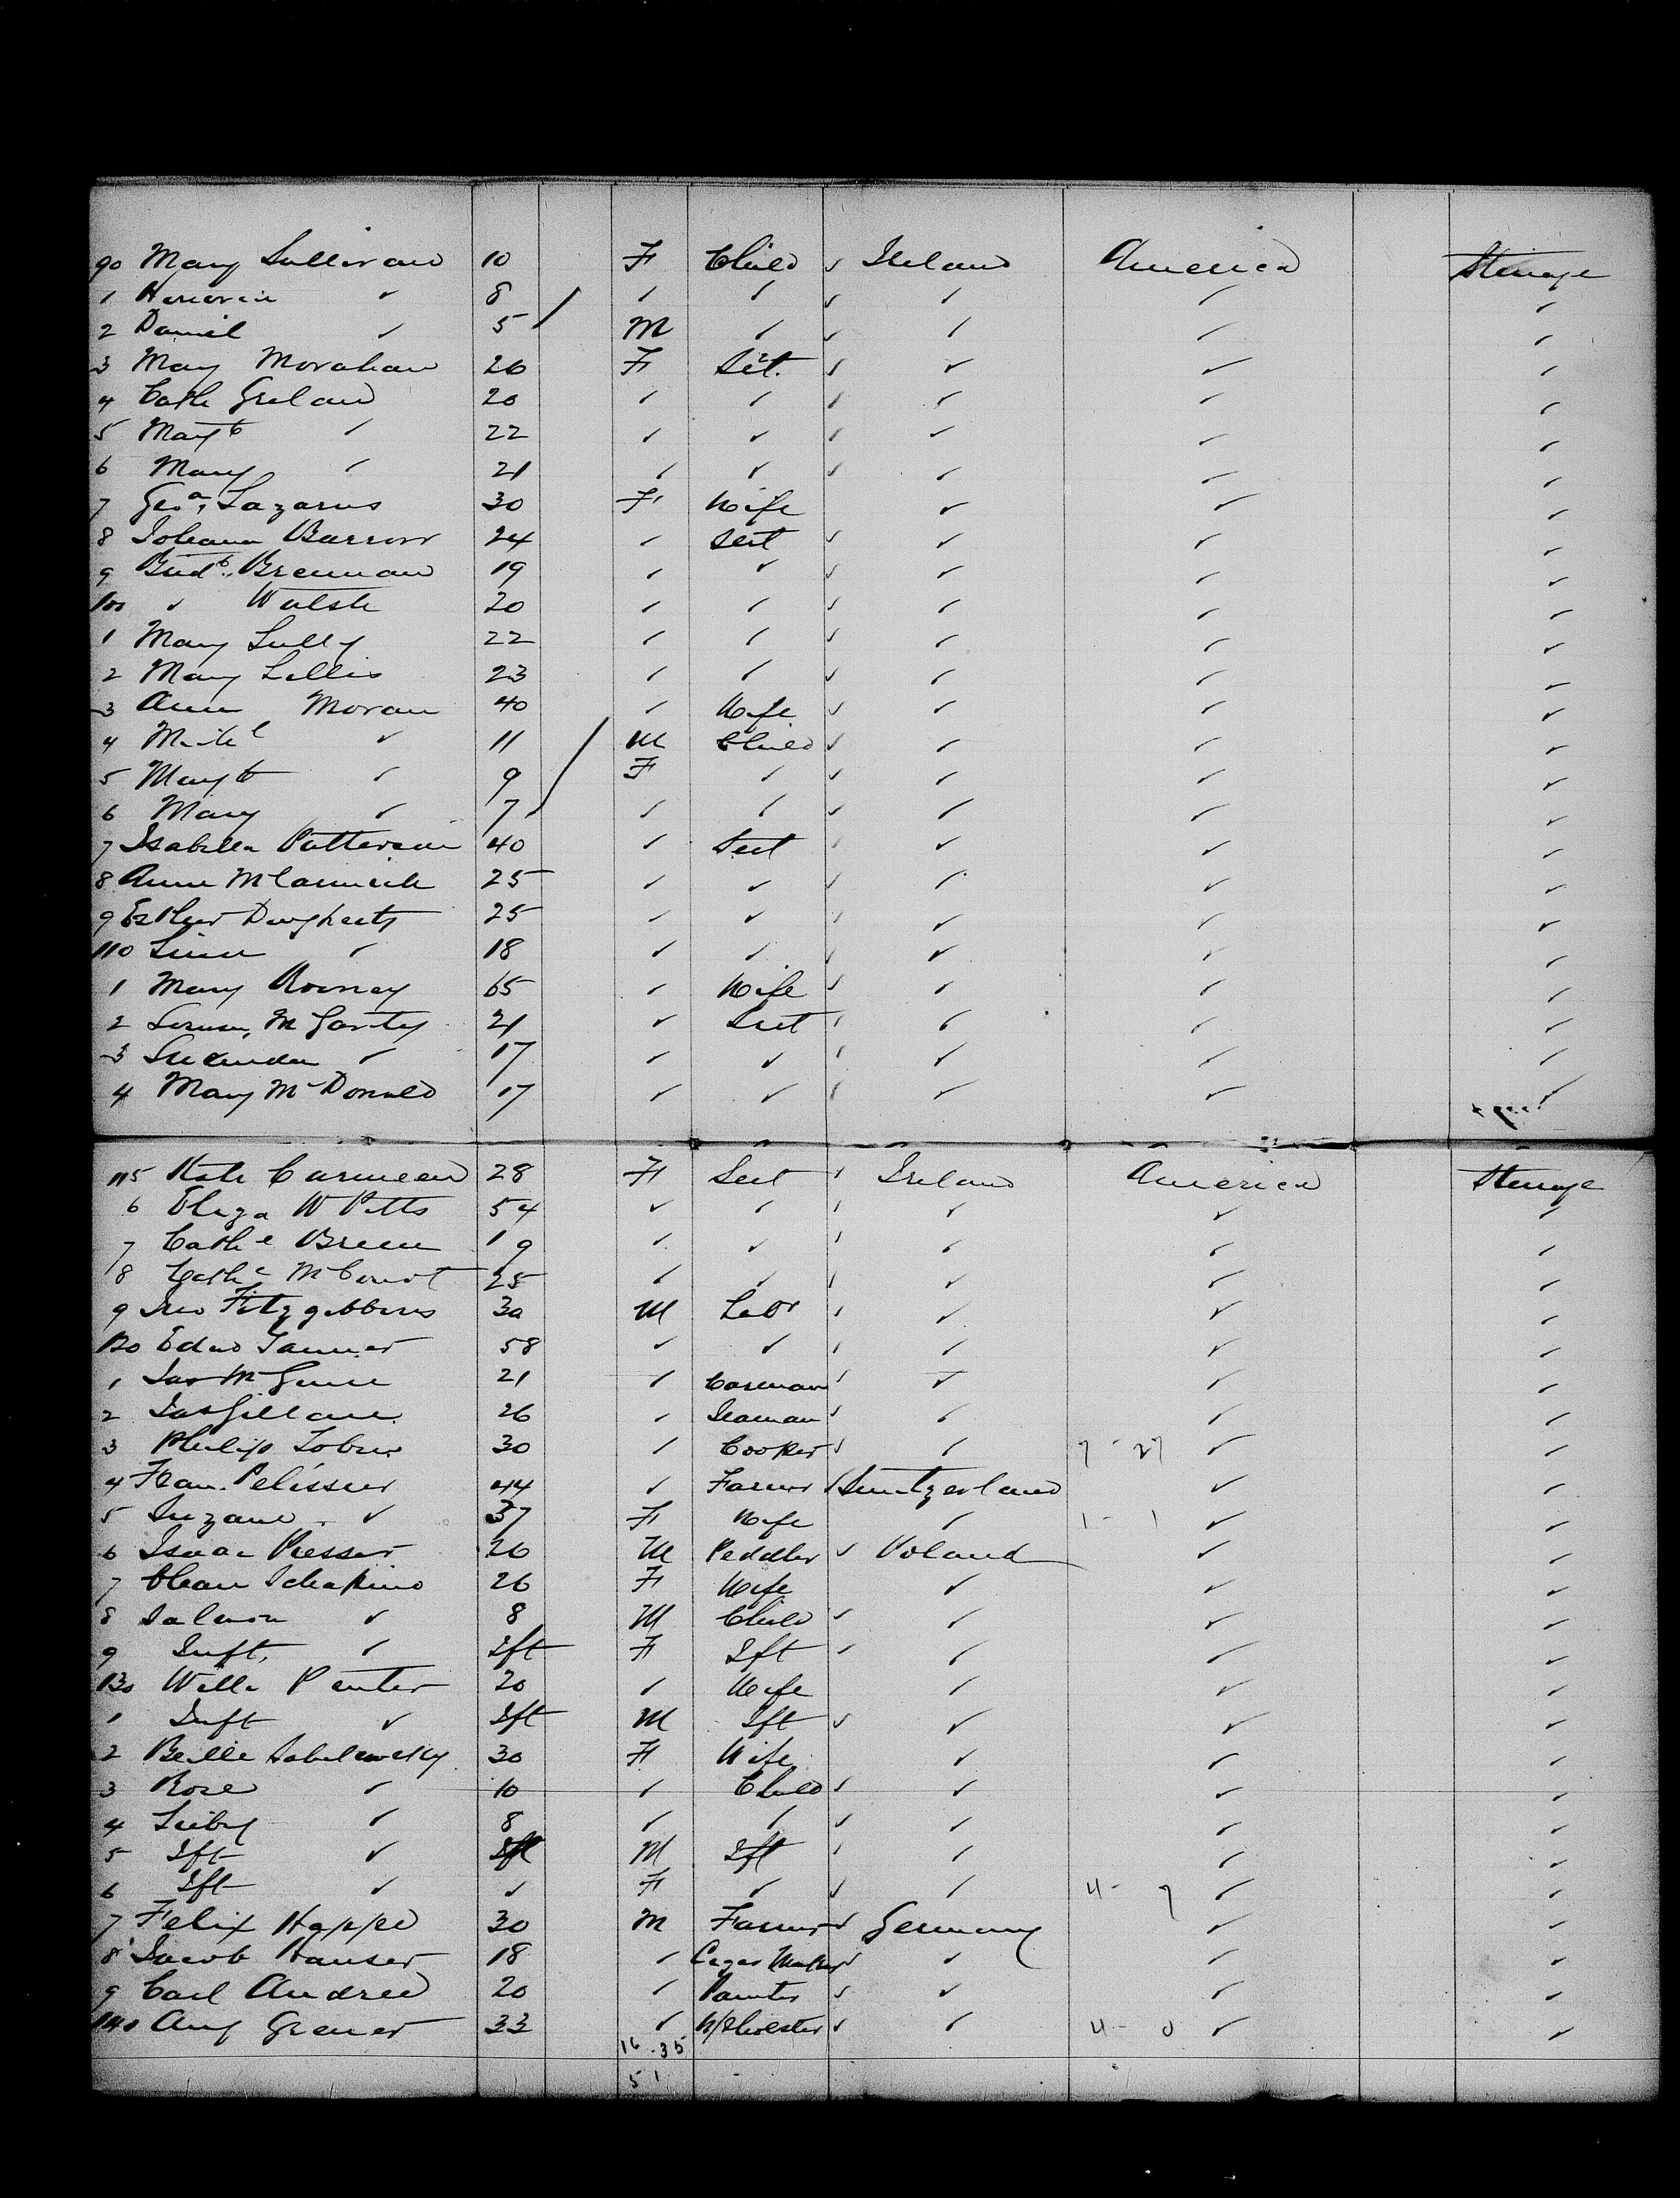 90 Mary Sullivan 10 F Child ✓ Ireland America Steerage
1 Honoria ✓ 8 ✓ ✓ ✓ ✓ ✓ ✓
2 Daniel ✓ 5 M ✓ ✓ ✓ ✓ ✓
3 Mary Morahan 26 F ✓ ✓ ✓ ✓
4 Cath Greland 20 ✓ ✓ ✓ ✓ ✓ ✓
5 Margt ✓ 22 ✓ ✓ ✓ ✓ ✓ ✓
6 Mary ✓ 21 ✓ ✓ ✓ ✓ ✓ ✓
7 Geoa. Lazarus 30 F Wife ✓ ✓ ✓
8 Johanna Barron 24 ✓ Sert ✓ ✓ ✓ ✓
9 Bridt. Brennan 19 ✓ ✓ ✓ ✓ ✓ ✓
100 ✓ Walsh 20 ✓ ✓ ✓ ✓ ✓ ✓
1 Mary Lully 22 ✓ ✓ ✓ ✓ ✓ ✓
2 Mary Lillis 23 ✓ ✓ ✓ ✓ ✓ ✓
3 Ann Moran 40 ✓ Wife ✓ ✓ ✓ ✓
4 Michl ✓ 11 M Child ✓ ✓ ✓ ✓
5 Margt ✓ 9 F ✓ ✓ ✓ ✓ ✓
6 Mary ✓ 7 ✓ ✓ ✓ ✓ ✓ ✓
7 Isabella Patterson 40 ✓ Sert ✓ ✓ ✓ ✓
8 Anne McCormick 25 ✓ ✓ ✓ ✓ ✓ ✓
9 Esther Dougherty 25 ✓ ✓ ✓ ✓ ✓ ✓
110 ✓ 18 ✓ ✓ ✓ ✓ ✓ ✓
1 Mary Rooney 65 ✓ Wife ✓ ✓ ✓ ✓
2 McGarty 21 ✓ Sert ✓ ✓ ✓ ✓
3 ✓ 17 ✓ ✓ ✓ ✓ ✓ ✓
4 Mary McDonald 17 ✓ ✓ ✓ ✓ ✓ ✓
115 Kate Carmeen 28 F Sert ✓ Ireland America Steerage
6 Eliza W Pitts 54 ✓ ✓ ✓ ✓ ✓ ✓
7 Cathe Breen 19 ✓ ✓ ✓ ✓ ✓ ✓
8 Cathe McCourt 25 ✓ ✓ ✓ ✓ ✓ ✓
9 Jno Fitzgibbons 30 M Labr ✓ ✓ ✓ ✓
120 Edwd Tanner 58 ✓ ✓ ✓ ✓ ✓
1 Jas McGuire 21 ✓ Carman ✓ ✓ ✓ ✓
2 Jas Gillane 26 ✓ Seaman ✓ ✓ ✓ ✓
3 Philip Tobin 30 ✓ Cooper ✓ ✓ 7-27 ✓ ✓
4 Fran. Pelissier 44 ✓ Farmer ✓ Switzerland ✓ ✓
5 Suzane ✓ 37 F Wife ✓ 1-1 ✓ ✓
6 Isaac Presser 26 M Peddler ✓ Poland ✓ ✓
7 Schapiro 26 F Wife ✓ ✓ ✓
8 Salmon ✓ 8 M Child ✓ ✓ ✓ ✓
9 Inft. ✓ Ift F Ift ✓ ✓ ✓ ✓
130 Wille Penter 20 ✓ Wife ✓ ✓ ✓
1 Inft ✓ Ift M Ift ✓ ✓ ✓ ✓
2 Beille Sabilewsky 30 F Wife ✓ ✓ ✓
3 Rose ✓ 10 ✓ Child ✓ ✓ ✓ ✓
4 Lieby ✓ 8 ✓ ✓ ✓ ✓ ✓ ✓
5 Ift ✓ Ift M Ift ✓ ✓ ✓ ✓
6 Ift ✓ ✓ F ✓ ✓ ✓ 4-7 ✓ ✓
7 Felix Hoppe 30 M Farmer ✓ Germany ✓ ✓
8 Jacob Hauser 18 ✓ Cegar Maker ✓ ✓ ✓ ✓
9 Carl Andree 20 ✓ Painter ✓ ✓ ✓ ✓
140 Aug Grener 33 ✓ Upholester ✓ ✓ 4-0 ✓ ✓
16.35
51